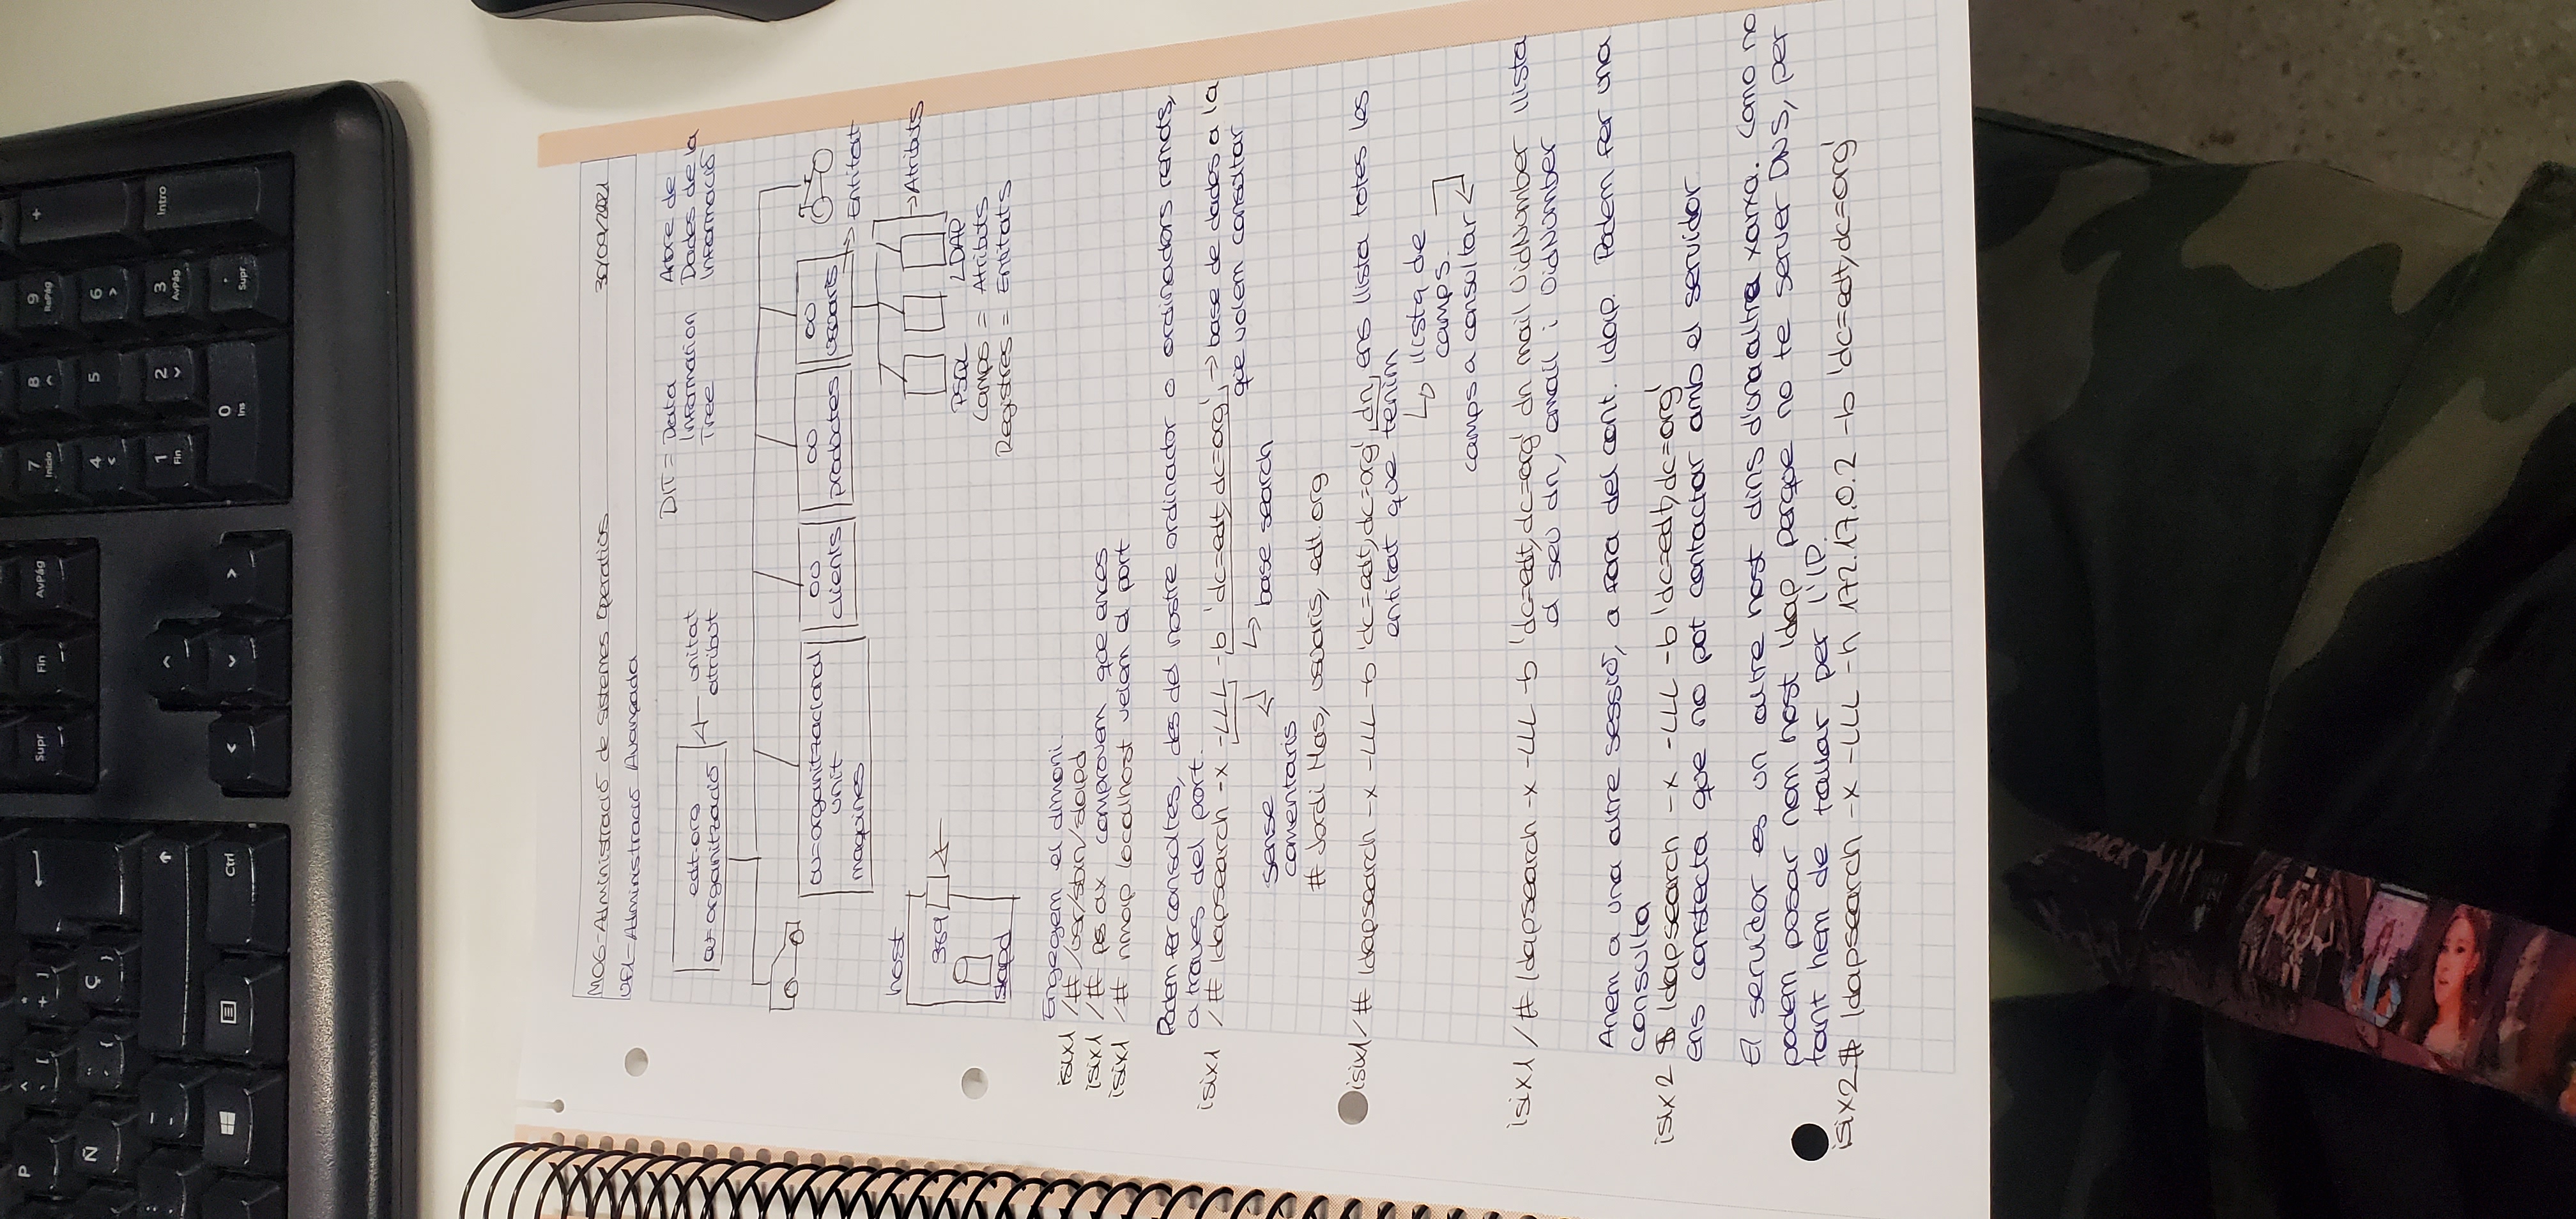 P
^ [
* + ]
Supr
Fin
AvPág
7 Inicio
8
9 RePág
+
Ñ
¨ ´ {
Ç }
4
5
6
1 Fin
2
3 AvPág
Intro
Ctrl
0 Ins
. Supr
M06-Administració de Sistemes Operatius 30/09/2021
UF1-Administració Avançada
edt.org
ou=organització
unitat
atribut
DIT = Data Information Tree
Arbre de Dades de la Informació
ou=organitzacional unit
maquines
ou
clients
ou
productes
ou
usuaris
Entitat
Atributs
host
389
slapd
PSQL LDAP
Camps = Atributs
Registres = Entitats
Engegem el dimoni.
isix1 /# /usr/sbin/slapd
isix1 /# ps ax comprovem que ences
isix1 /# nmap localhost veiem el port
Podem fer consultes, des del nostre ordinador o ordinadors remots,
a traves del port.
isix1 /# ldapsearch -x -LLL -b 'dc=edt,dc=org', → base de dades a la
que volem consultar
sense
comentaris
base search
# Jordi Mas, usuaris, edt.org
isix1 /# ldapsearch -x -LLL -b 'dc=edt,dc=org', dn, ens llista totes les
entitat que tenim
llista de
camps.
camps a consultar
isix1 /# ldapsearch -x -LLL -b 'dc=edt,dc=org' dn mail UidNumber llista
el seu dn, email i UidNumber
Anem a una altre sessió, a fora del cont. ldap. Podem fer una
consulta
isix2 $ ldapsearch -x -LLL -b 'dc=edt,dc=org'
ens constecta que no pot contactar amb el servidor
El servidor es un altre host dins d'una altre xarxa. Como no
podem posar nom host ldap perque no te server DNS, per
tant hem de tallar per l'IP.
isix2 $ ldapsearch -x -LLL -h 172.17.0.2 -b 'dc=edt,dc=org'